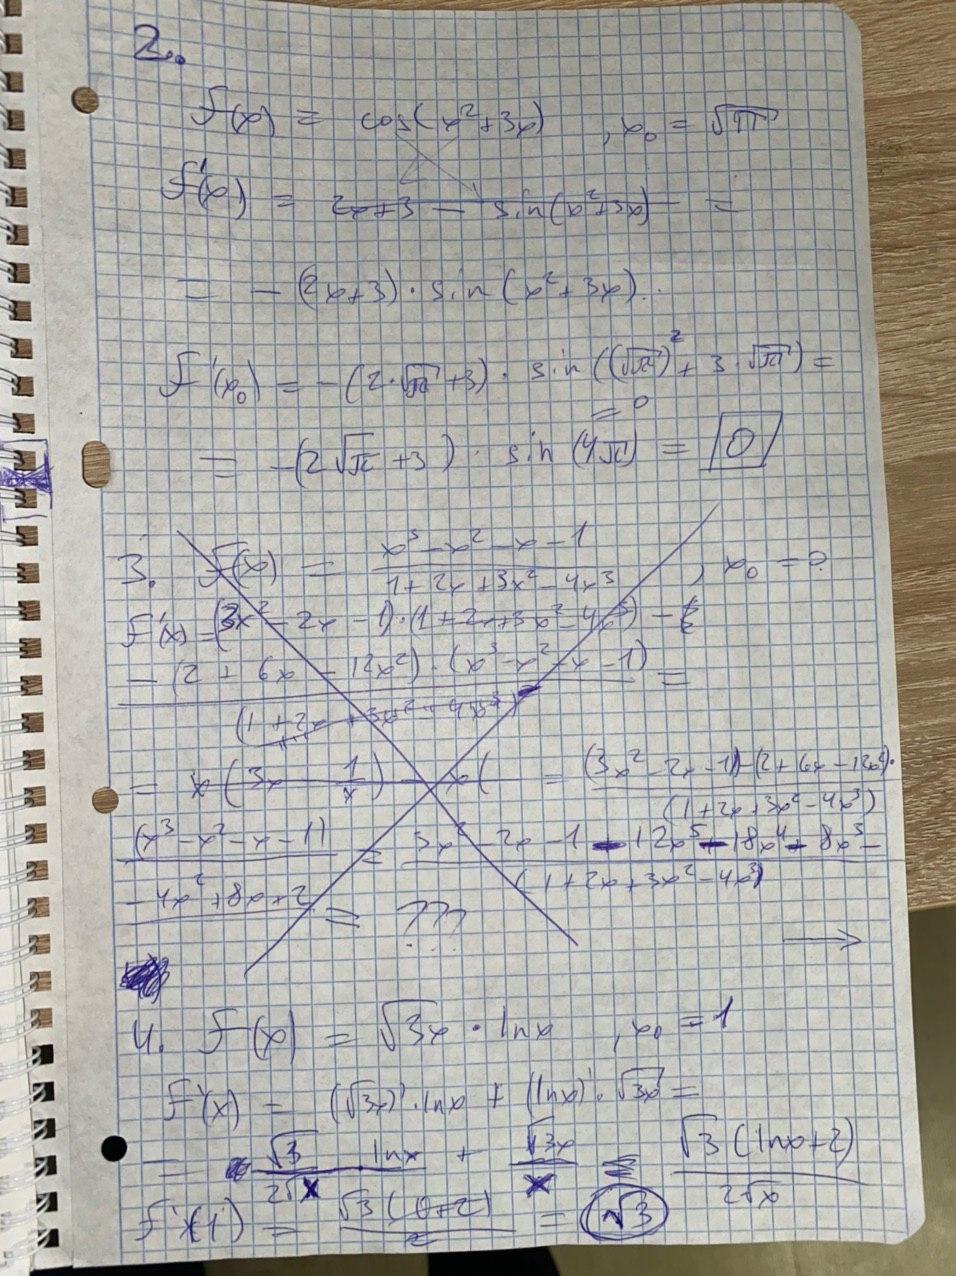 2.
f(x) = cos(x²+3x) , x₀ = √π
f'(x) = 2x+3 - sin(x²+3x) =
= -(2x+3)·sin(x²+3x)
f'(x₀) = -(2·√π+3)·sin((√π)²+3·√π) =
= 0
= -(2√π+3)·sin(4√π) = 0
3. f(x) = (x³-x²-x-1)/(1+2x+3x²-4x³) , x₀ = 0
f'(x) = (3x²-2x-1)·(1+2x+3x²-4x³) -
-(2+6x-12x²)·(x³-x²-x-1) =
(1+2x+3x²-4x³)²
= x(3x - 1/x) - x( = (3x²-2x-1)-(2+6x-12x²)·
(1+2x+3x²-4x³)
(x³-x²-x-1) = 3x²-2x-1-12x⁵-18x⁴+8x³-
(1+2x+3x²-4x³)
-4x²+8x+2 = ???
→
4. f(x) = √3x · lnx , x₀ = 1
f'(x) = (√3x)'·lnx + (lnx)'·√3x =
= √3/(2√x) · lnx + √3x/x = √3(lnx+2)/(2√x)
f'(1) = √3(0+2)/2 = √3